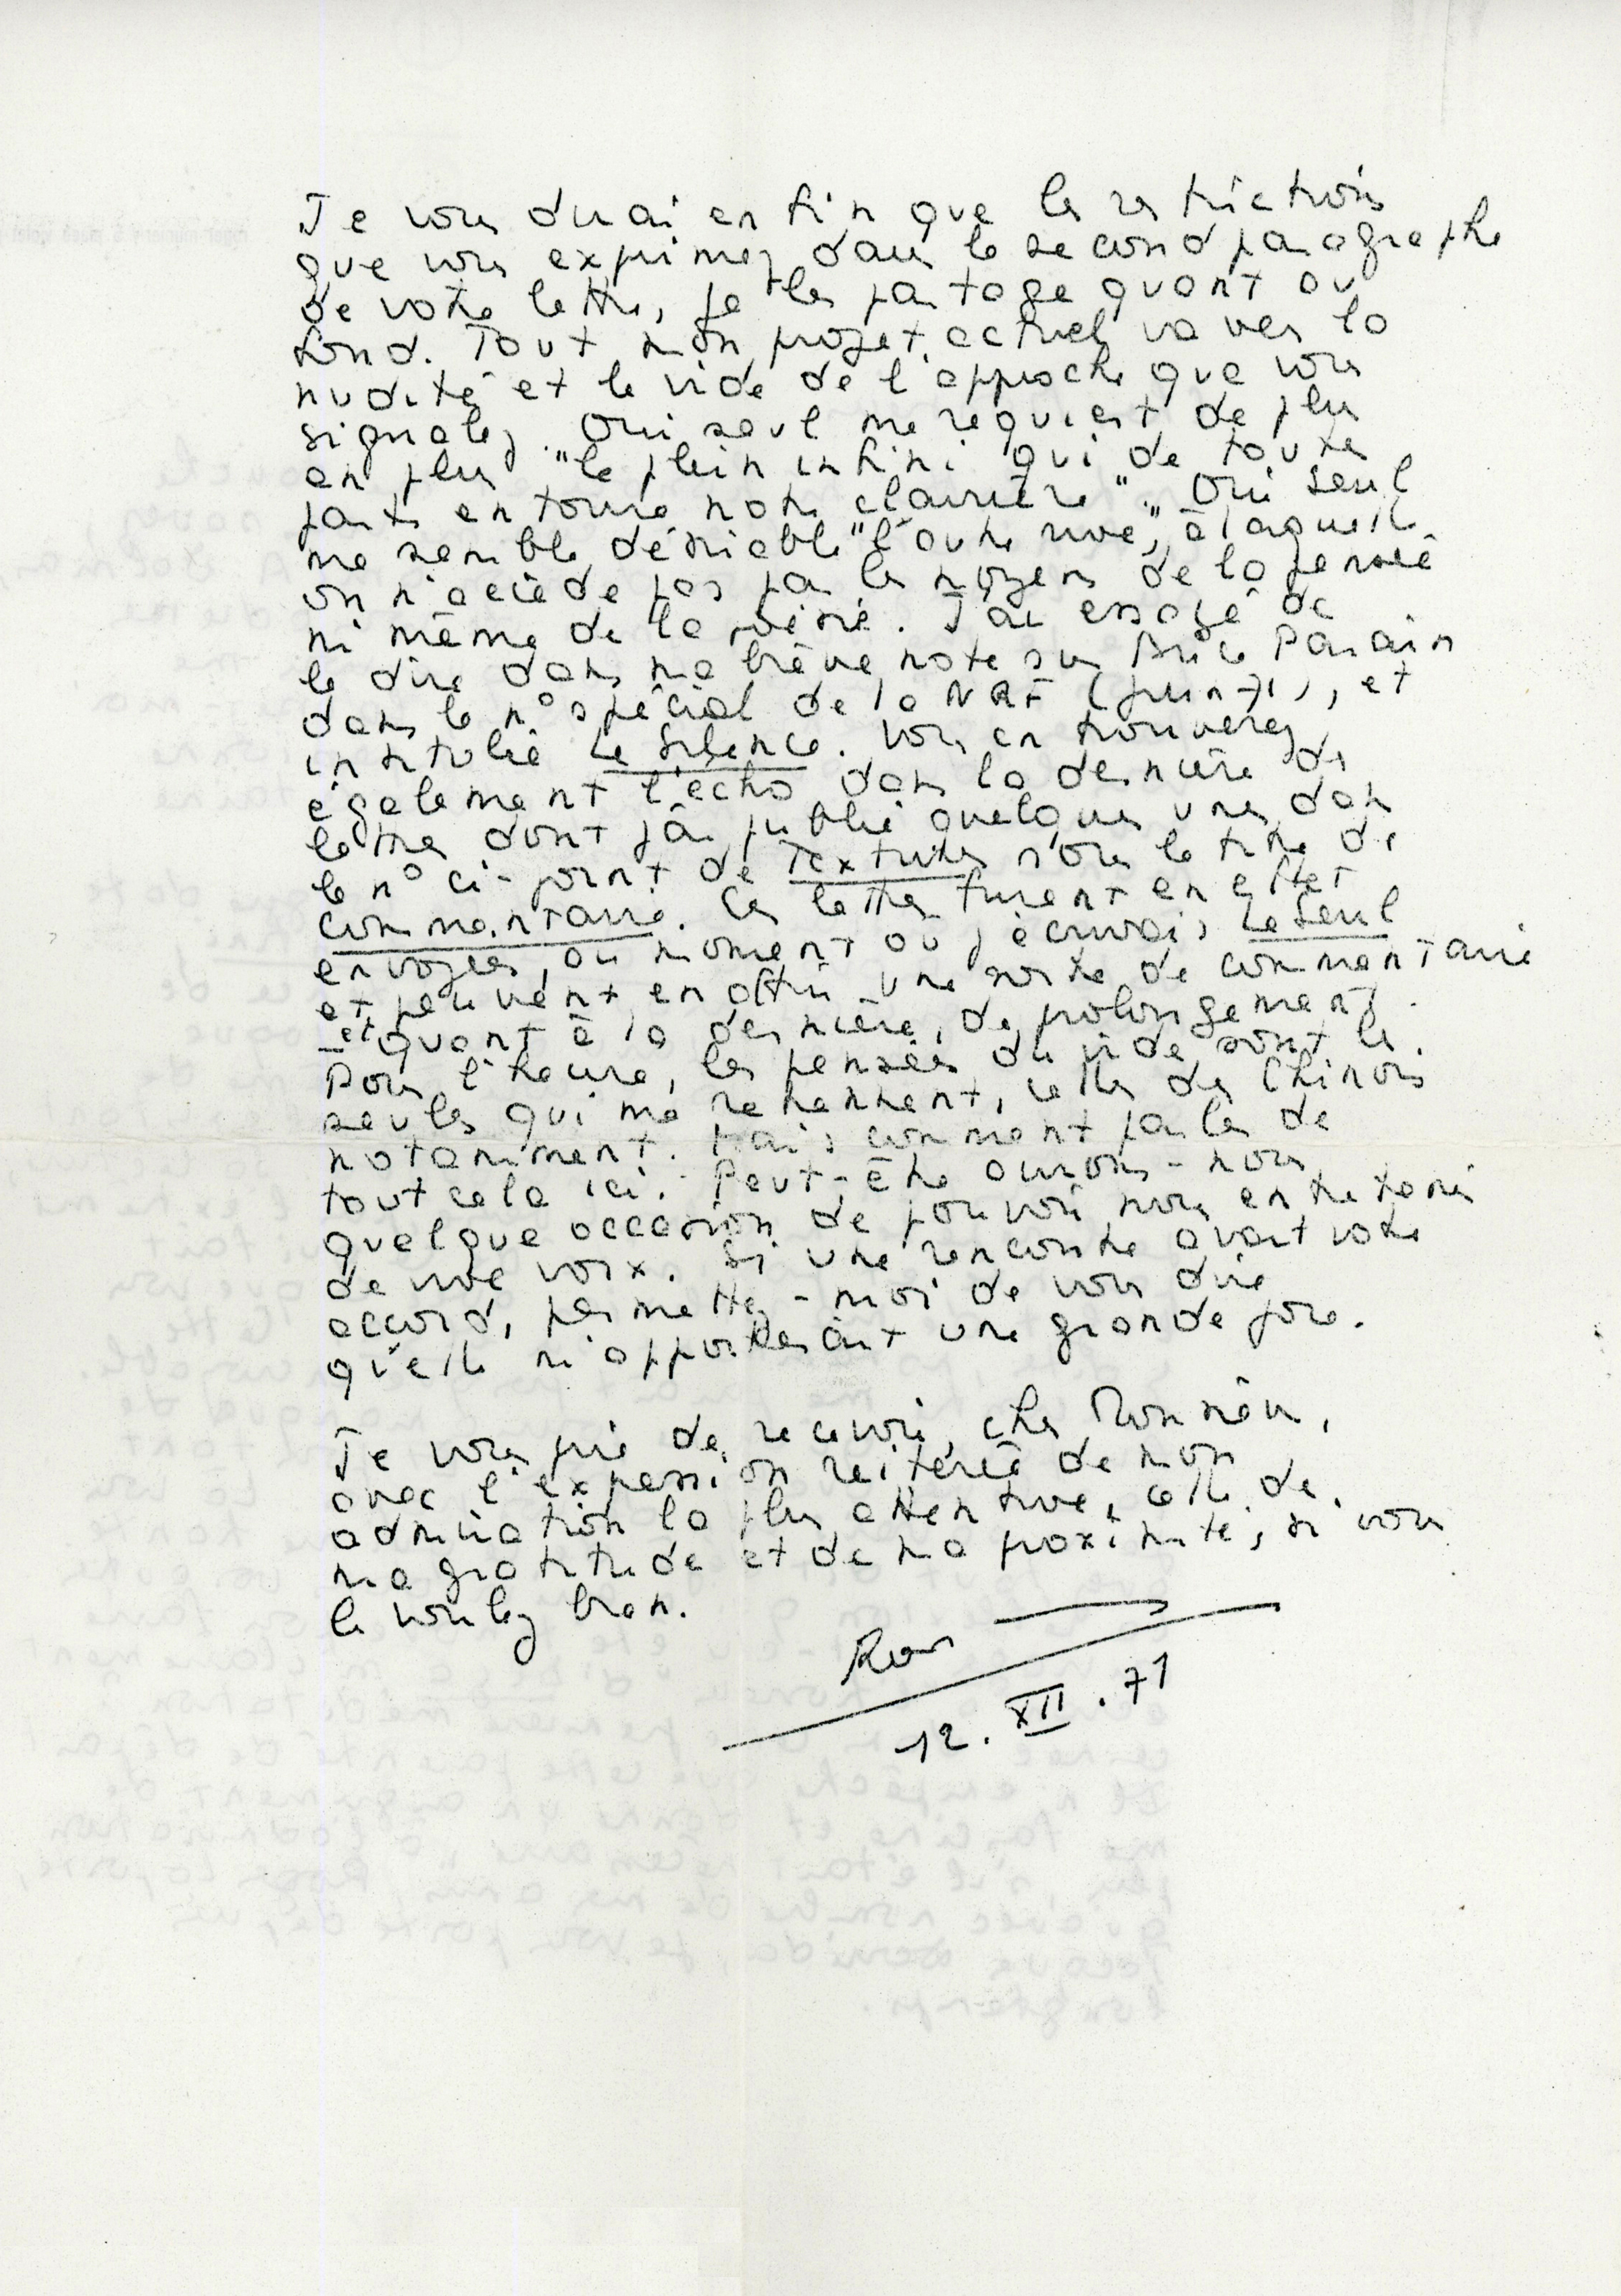 Je vous dirai enfin que les restrictions
que vous exprimez dans le second paragraphe
de votre lettre, je les partage quant au
fond. Tout mon projet actuel va vers la
nudité et le vide de l'approche que vous
signalez. Oui seul me requiert de plus
en plus "le plein infini qui de toutes
parts entoure notre clairière". Oui seul
me semble désirable "l'autre rive", à laquelle
on n'accède pas par les moyens de la pensée
ni même de la poésie. J'ai essayé de
le dire dans ma brève note sur Brice Parain
dans le n° spécial de la NRF (juin 71), et
intitulée Le Silence. Vous en trouverez
également l'écho dans la dernière des
lettres dont j'ai publié quelques unes dans
le n° ci-joint de Textures sous le titre de
commentaire. Ces lettres furent en effet
envoyées, au moment où j'écrivais Le Seuil
et peuvent en offrir une sorte de commentaire
- et quant à la dernière, de prolongement.
Pour l'heure, les pensées du vide sont les
seules qui me retiennent, celles des Chinois
notamment. Mais comment parler de
tout cela ici. Peut-être aurons-nous
quelque occasion de pouvoir nous entretenir
de vive voix. Si une rencontre avait votre
accord, permettez-moi de vous dire
qu'elle m'apporterait une grande joie.
Je vous prie de recevoir, cher Monsieur,
avec l'expression réitérée de mon
admiration la plus attentive, celle de
ma gratitude et de ma proximité, si vous
le voulez bien.
12.XII.71